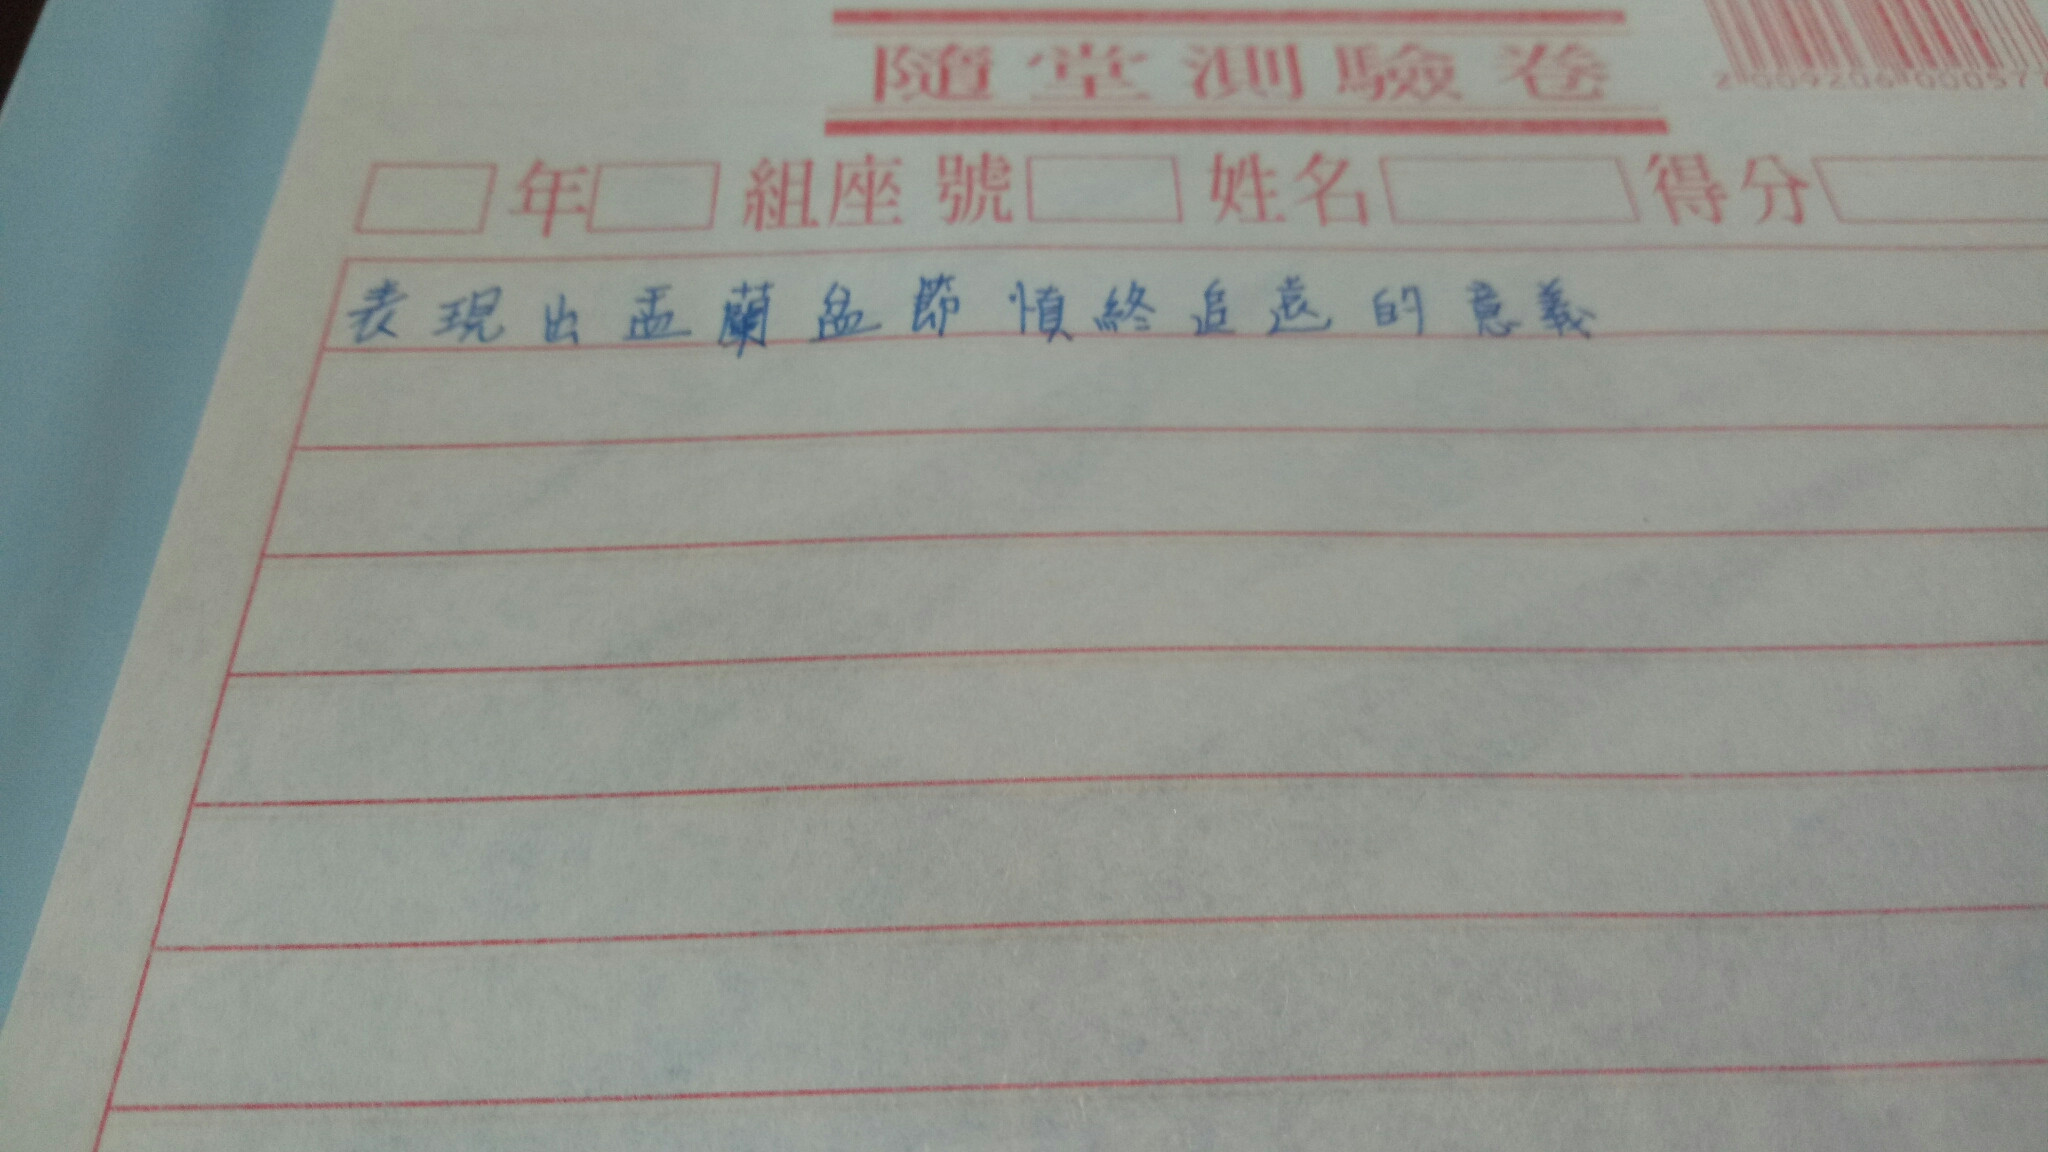 隨堂測驗卷
年 組座號 姓名 得分
表現出盂蘭盆節慎終追遠的意義